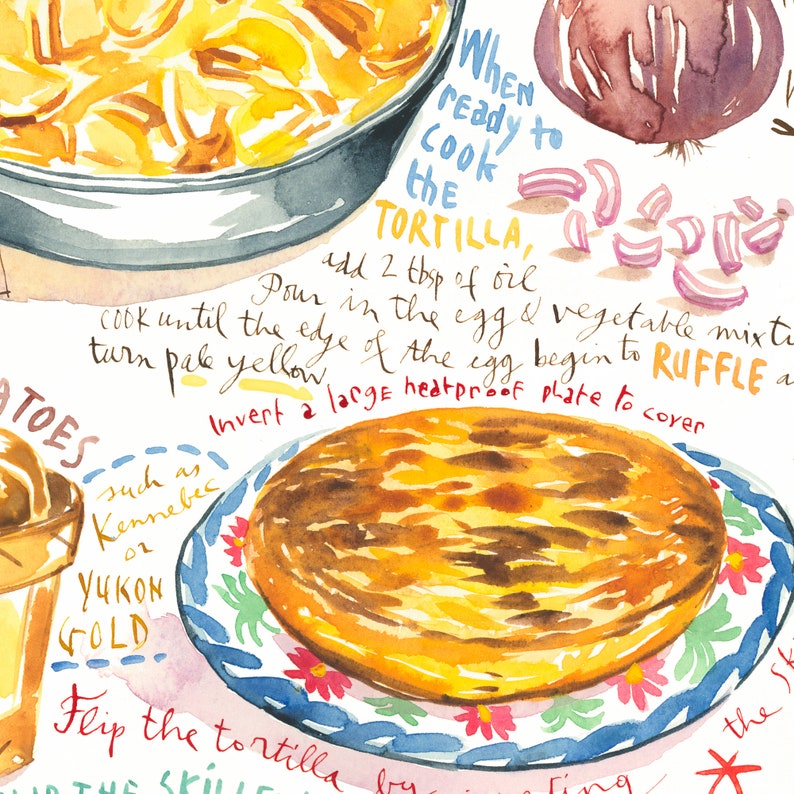 WHEN
ready to
cook
the
TORTILLA,
add 2 tbsp of oil
Pour in the egg & vegetable mixtu
cook until the edge of the egg begin to RUFFLE a
turn pale yellow
Invert a large heatproof plate to cover
ATOES
such as
Kennebec
or
YUKON
GOLD
Flip the tortilla by inverting
the sk
THE SKILLE